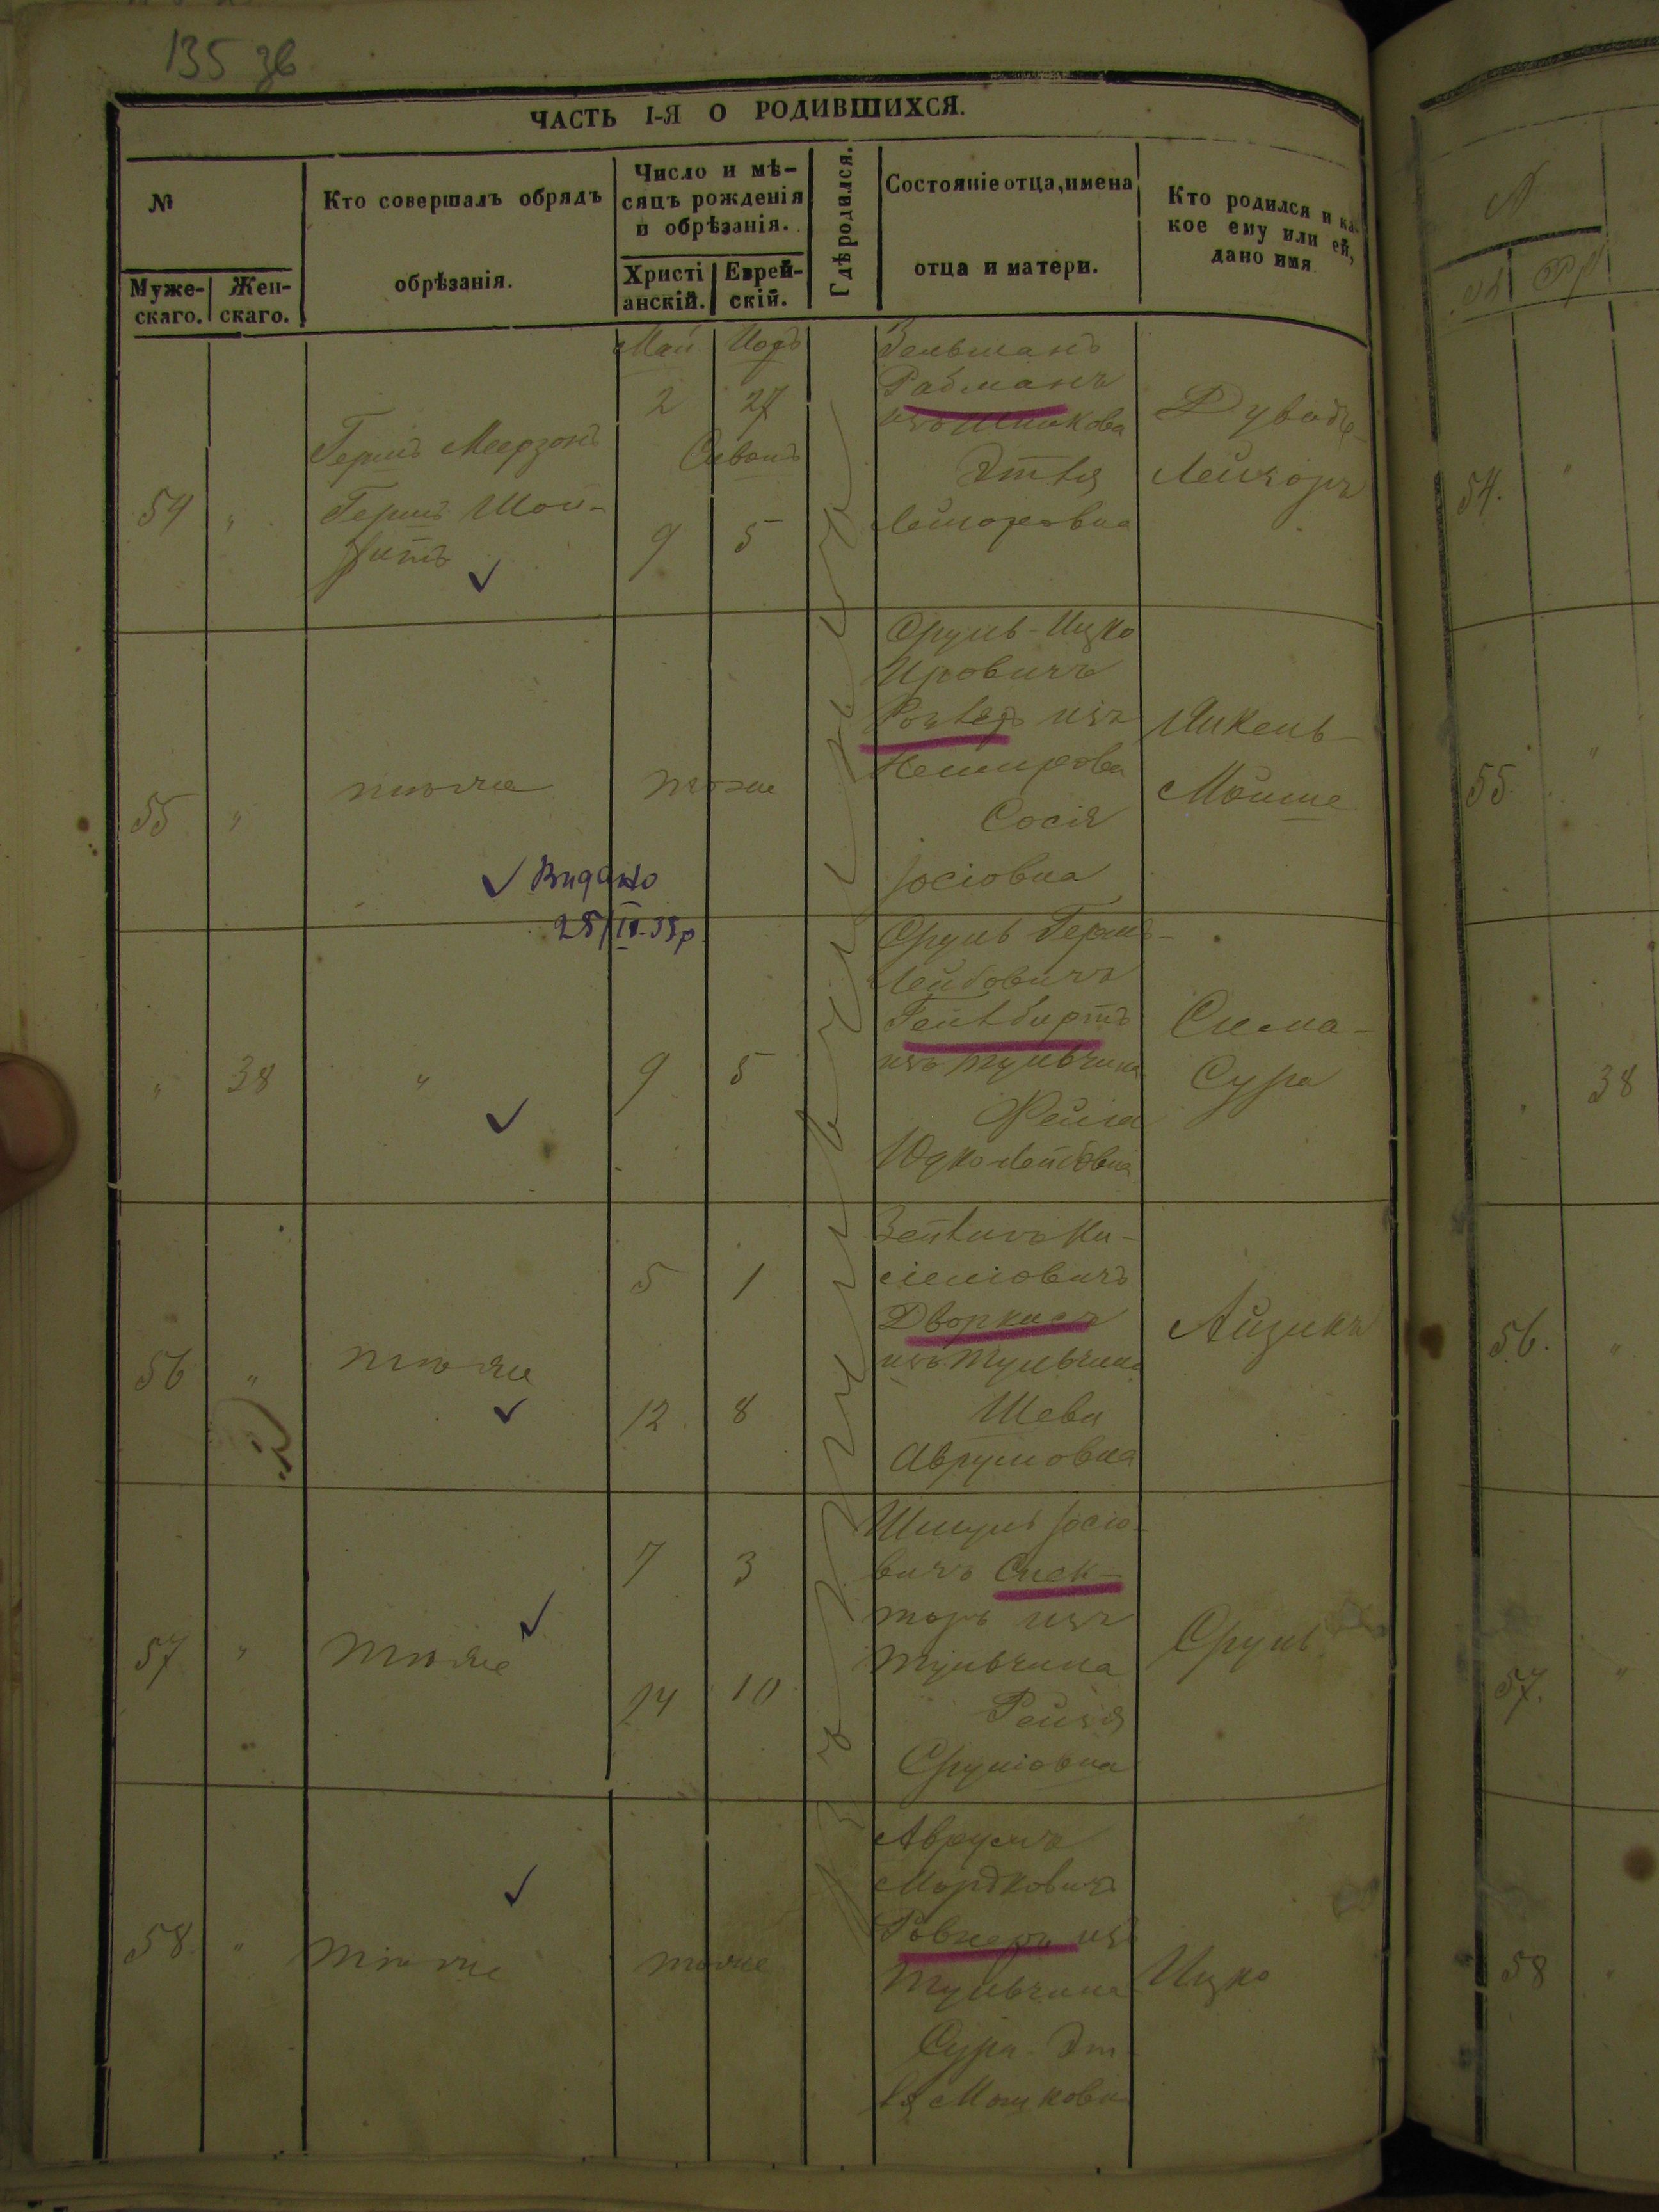 135 зв
ЧАСТЬ I-Я О РОДИВШИХСЯ.
№
Муже-
скаго.
Жен-
скаго.
Кто совершалъ обрядъ
обрѣзанія.
Число и мѣ-
сяцъ рожденія
и обрѣзанія.
Христі
анскій.
Еврей-
скій.
Гдѣ родился.
Состояніе отца, имена
отца и матери.
Кто родился и ка-
кое ему или ей,
дано имя
54
"
Герш Шой-
Май
2
27
Сиванъ
9
5
Зельманъ
Рабманъ
изъ Шпикова
Этля
Лейзоровна
Дувидъ-
Лейзоръ
55
"
тоже
тоже
✓ Видано
25/IV-35р
Срулъ-Ицко
изъ
Немирова
Сося
Іосіовна
Янкель-
Мойше
"
38
"
9
5
Срулъ Гершъ-
Лейбовичъ
изъ Тульчина
Фейга
Юдко-Лейбовна
Сима-
Сура
56
"
тоже
5
1
12
8
Дворкисъ
изъ Тульчина
Шева
Аврумовна
Айзикъ
57
"
тоже
7
3
14
10
Шмулъ Іосіо-
вичъ Спек-
торъ изъ
Тульчина
Рейзя
Сруліовна
Срулъ
58
"
тоже
тоже
Аврумъ
Мордковичъ
Ровнеръ изъ
Тульчина
Сура-Эт-
ля Мошковна
Ицко
54.
"
55.
"
"
38
56.
"
57.
"
58